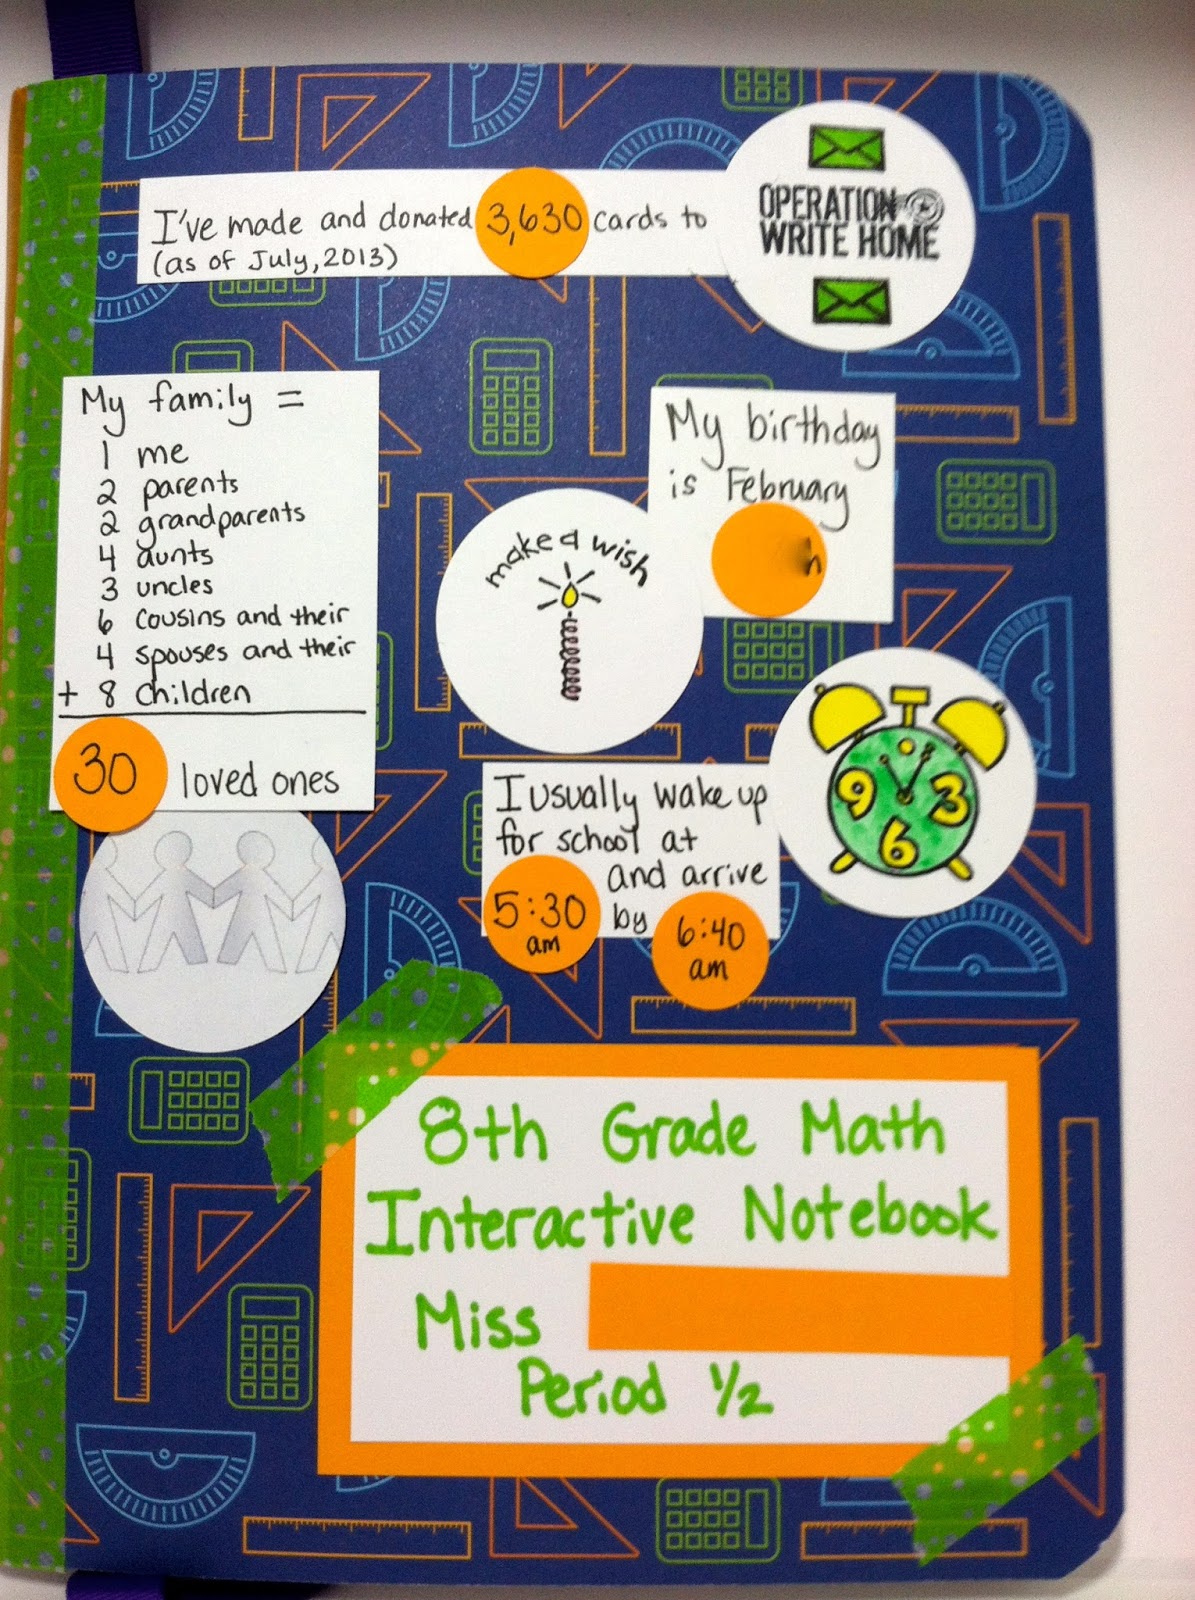 I've made and donated 3,630 cards to
(as of July, 2013)
OPERATION
WRITE HOME
My family =
1 me
2 parents
2 grandparents
4 aunts
3 uncles
6 cousins and their
4 spouses and their
+ 8 children
30 loved ones
make a wish
My birthday
is February
I usually wake up
for school at
5:30
am
and arrive
by
6:40
am
12
9 3
6
8th Grade Math
Interactive Notebook
Miss
Period 1/2